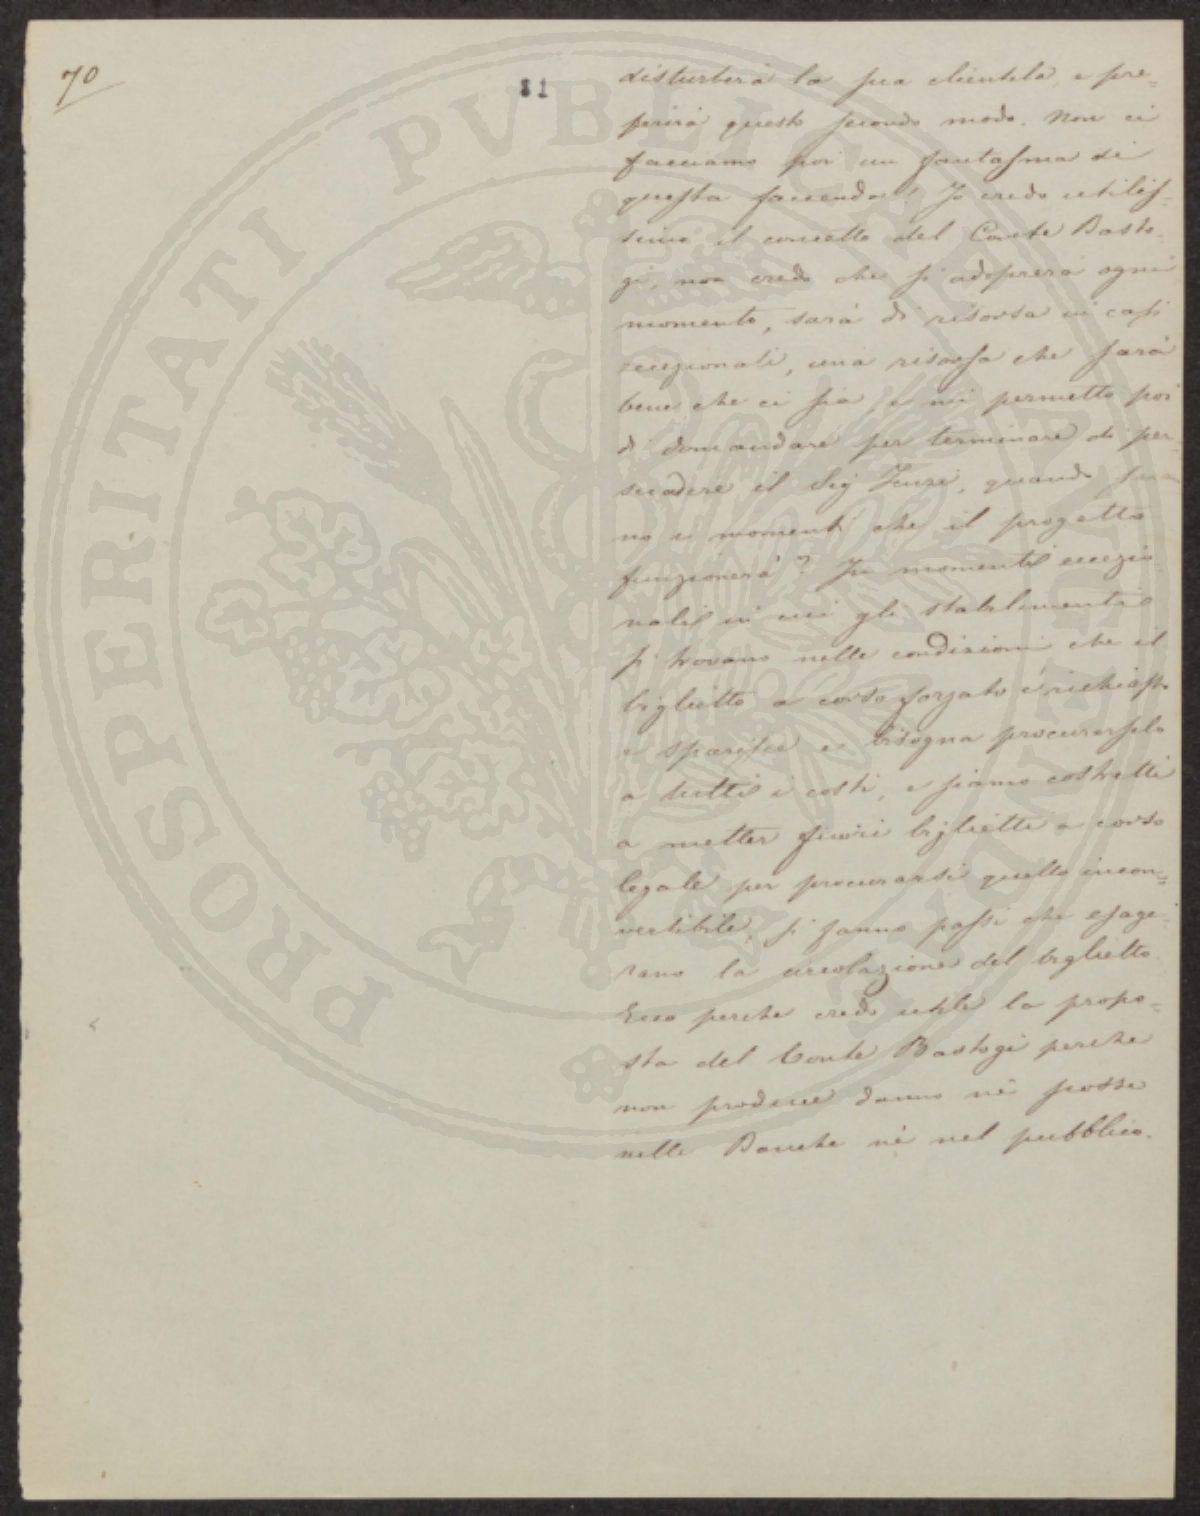 70
81
disturberà la sua clientela, e pre=
ferirà questo secondo modo. Non ci
facciamo poi un fantasma di
questa faccenda! Io credo utilis=
simo il concetto del Conte Basto=
gi, non credo che si adoprerà ogni
momento, sarà di risorsa in casi
eccezionali, una risorsa che sarà
bene che ci sia, e mi permetto poi
di domandare per terminare di per=
suadere il Sig Fenzi, quando sa
no i momenti che il progetto
funzionerà? In momenti eccezio
nali in cui gli stabilimenti
si trovano nelle condizioni che il
biglietto a corso forzato è richiesto
e sparisce e bisogna procurarselo
a tutti i costi, e siamo costretti
a metter fuori biglietti a corso
legale per procurarsi quello incon=
vertibile, si fanno passi che esage
rano la circolazione del biglietto.
Ecco perchè credo utile la propo=
sta del Conte Bastogi perchè
non produce danno nè scosse
nelle Banche nè nel pubblico.
PROSPERITATI PVBLICAE